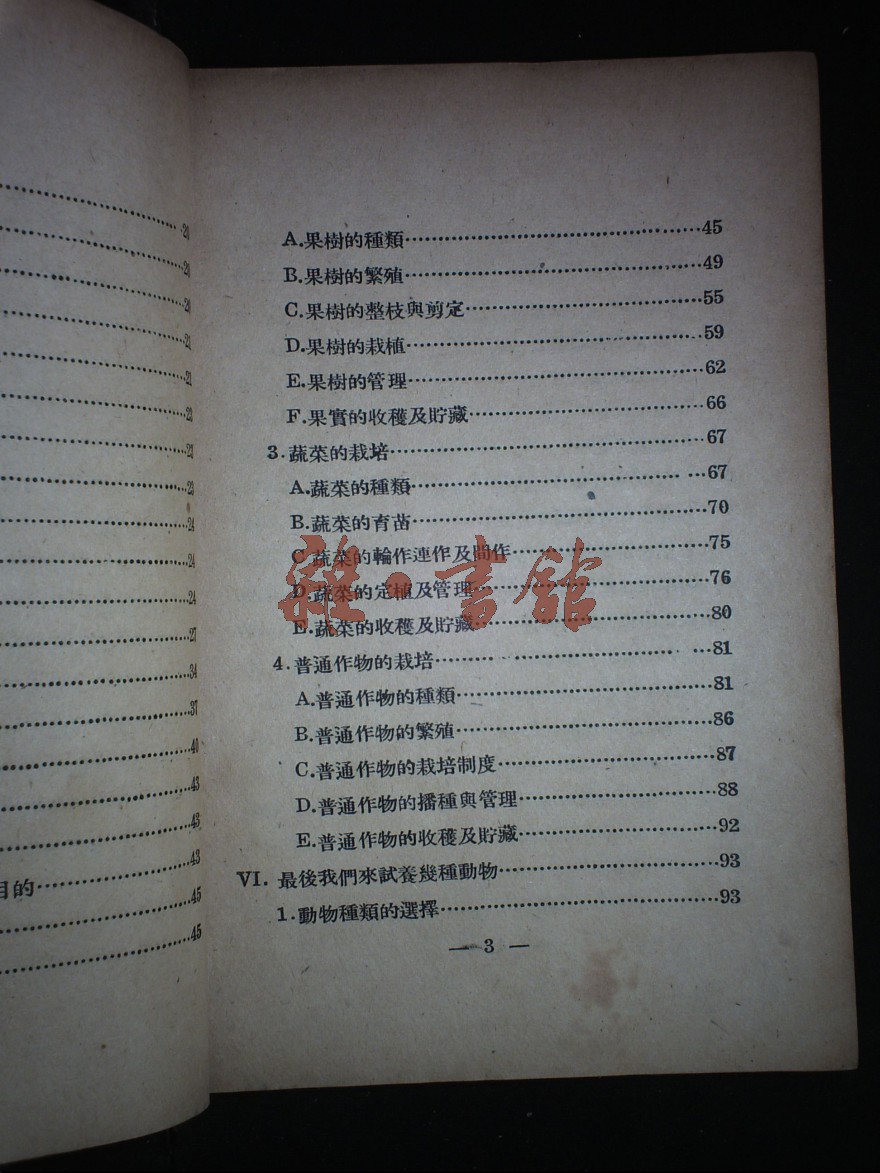 28
28
20
21
21
23
23
23
24
24
24
27
34
37
40
43
43
目的 43
45
45
A.果樹的種類 45
B.果樹的繁殖 49
C.果樹的整枝與剪定 55
D.果樹的栽植 59
E.果樹的管理 62
F.果實的收穫及貯藏 66
3.蔬菜的栽培 67
A.蔬菜的種類 67
B.蔬菜的育苗 70
C.蔬菜的輪作連作及間作 75
D.蔬菜的定植及管理 76
E.蔬菜的收穫及貯藏 80
4.普通作物的栽培 81
A.普通作物的種類 81
B.普通作物的繁殖 86
C.普通作物的栽培制度 87
D.普通作物的播種與管理 88
E.普通作物的收穫及貯藏 92
VI. 最後我們來試養幾種動物 93
1.動物種類的選擇 93
— 3 —
雜·書館